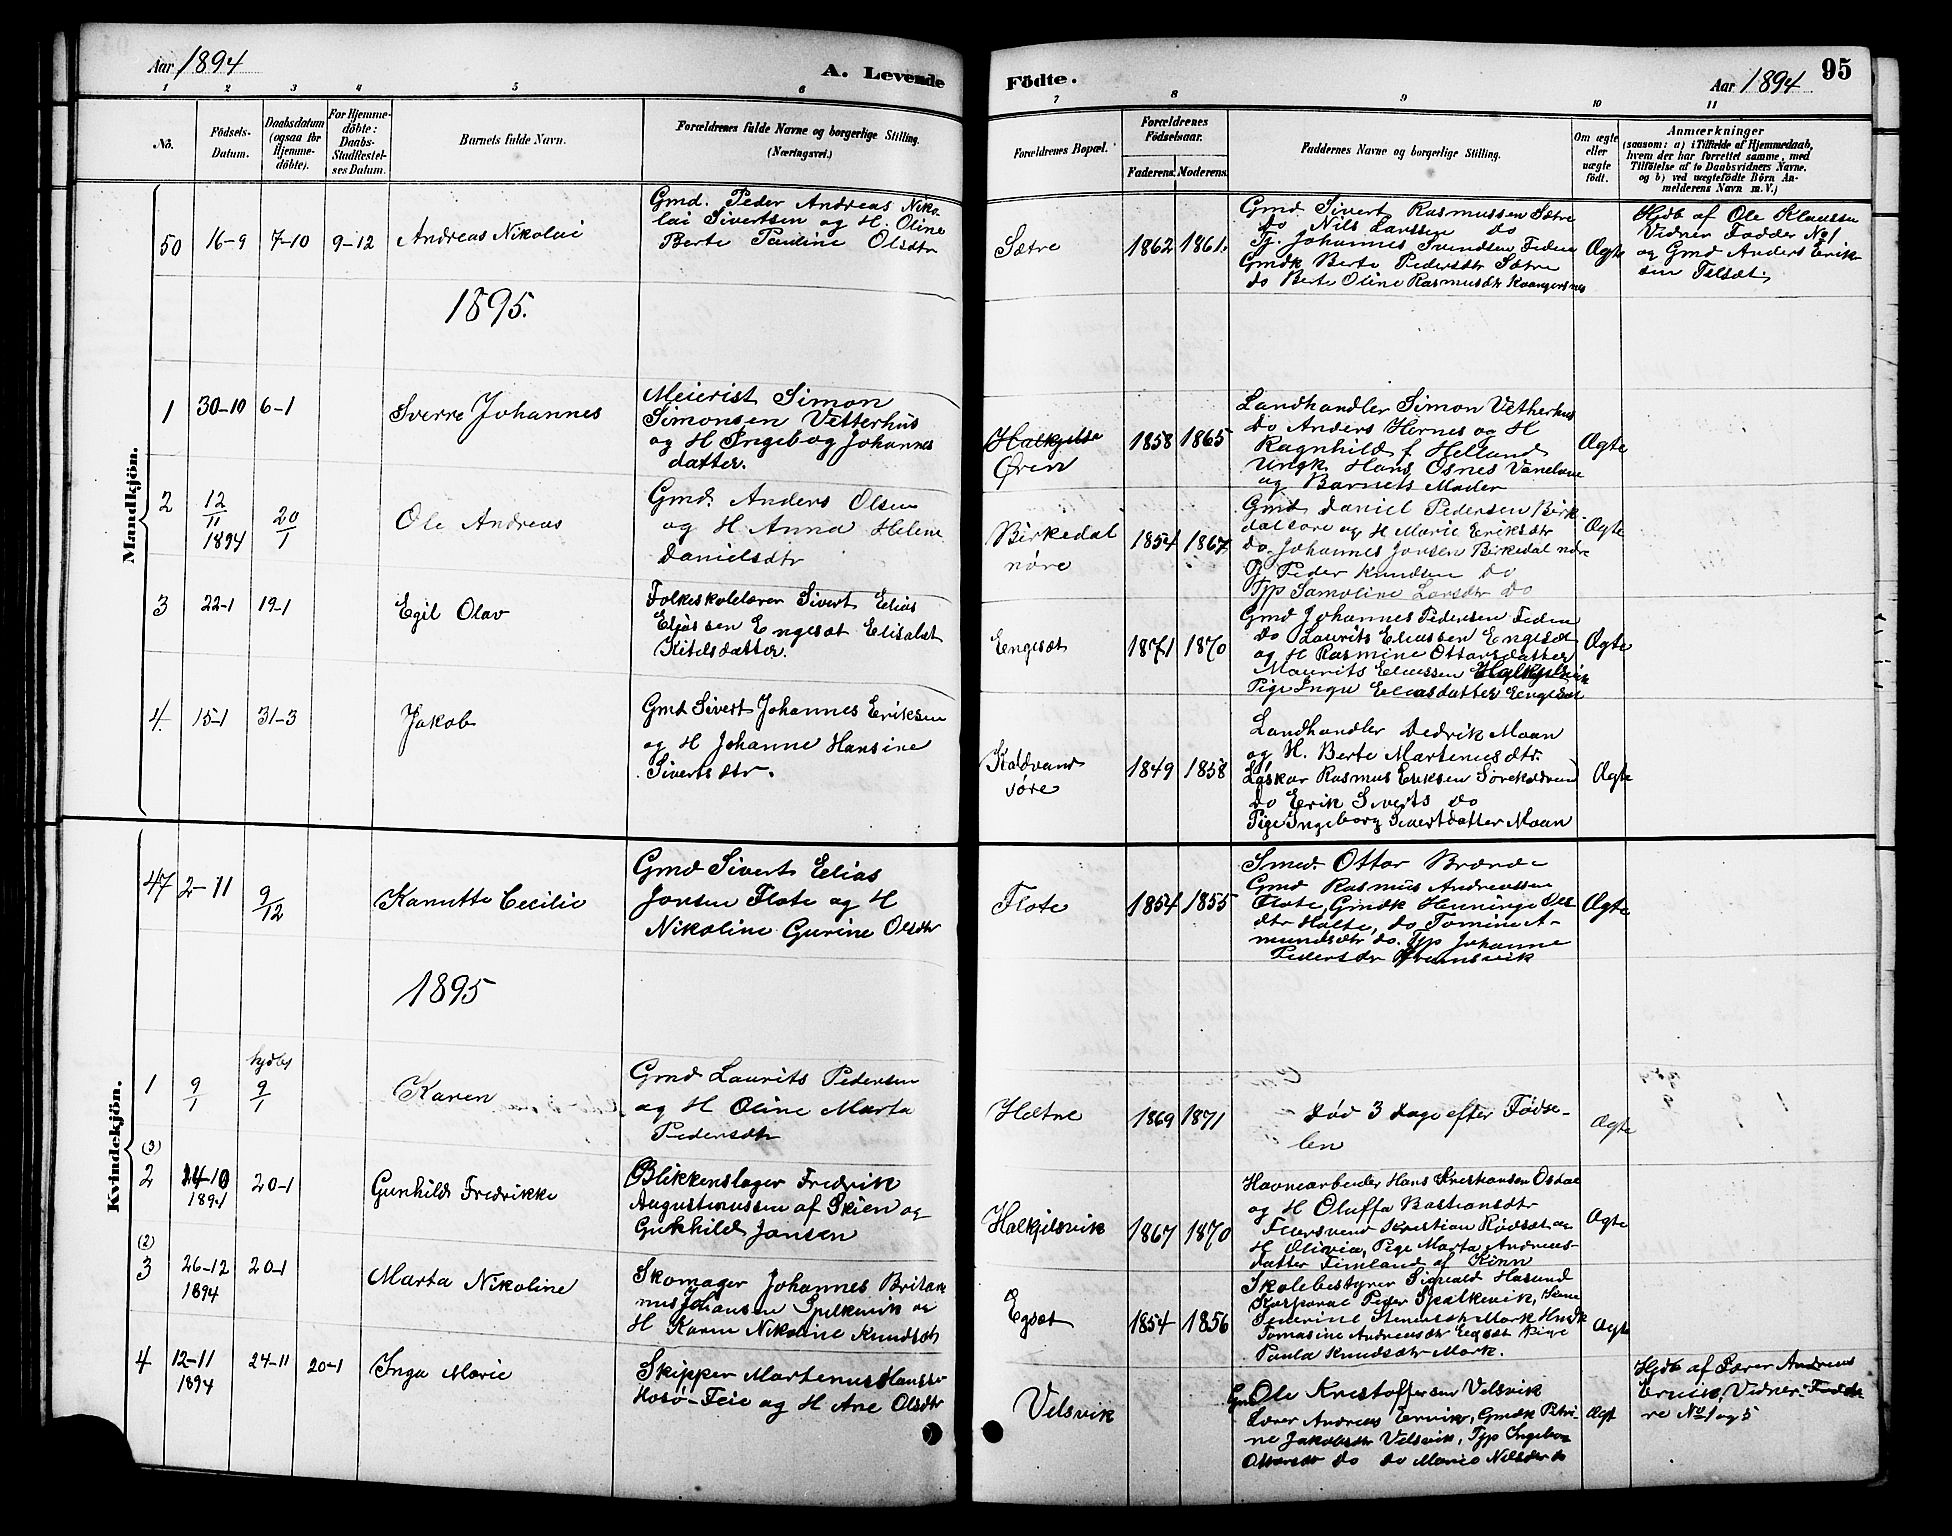 Aar 1894
A. Levende
1 2 3 4 5 6
No.
Födsels-
Datum.
Daabsdatum
(ogsaa for
Hjemme-
döbte).
For Hjemme-
döbte:
Daabs-
Stadfæstel-
ses Datum.
Barnets fulde Navn.
Forældrenes fulde Navne og borgerlige Stilling.
(Næringsvei.)
Mandkjön.
50 16-9 7-10 9-12 Andreas Nikolai
Gmd. Peder Andreas Niko-
lai Sivertsen og H. Oline
Berte Pauline Olsdtr
1895.
1 30-10 6-1 Sverre Johannes
Meierist Simon
Simonsen Vetterhus
og H Ingebog Johannes
datter.
2 12/11 1894 20/1 Ole Andreas
Gmd. Anders Olsen
og H Anna Helene
Danielsdtr
3 22-1 19-1 Egil Olav
Folkeskolelærer Sivert Elias
Eliassen Engeset Elisabet
Kitelsdatter.
4. 15-1 31-3 Jakob
Gmd Sivert Johannes Eriksen
og H Johanne Hansine
Sivertsdtr.
Kvindekjön.
47 2-11 9/12 Kanutte Cecilie
Gmd Sivert Elias
Jonsen Flote og H
Nikoline Gurine Olsdtr
1895
1 9/1 hjdbt 9/1 Karen
Gmd Laurits Pedersen
og H Oline Marta
Pedersdtr
(3)
2 24-10 1894 20-1 Gunhild Fredrikke
Blikkenslager Fredrik
Augustinussen af Skien og
Gunhild Jansen
(2)
3 26-12 1894 20-1 Marta Nikoline
Skomager Johannes Britan
nus Johansen Spilkevik og
H Karen Nikoline Knudsdtr
4 12-11 1894 24-11 20-1 Inga Marie
Skipper Martenus Hansen
Hosø-Feie og H Ane Olsdtr
Födte.
Aar 1894
95
7 8 9 10 11
Forældrenes Bopæl.
Forældrenes
Födselsaar.
Faderens. Moderens.
Faddernes Navne og borgerlige Stilling.
Om ægte
eller
uægte
födt.
Anmærkninger
(saasom: a) i Tilfælde af Hjemmedaab,
hvem der har forrettet samme, med
Tilföielse af to Daabsvidners Navne.
og b) ved uægtefödte Börn An-
melderens Navn m. V.)
Sætre 1862 1861.
Gmd Sivert Rasmussen Sætre
do Nils Larssen do
Tj. Johannes Svendsen
Gmdk Berte Pedersdtr Sætre
do Berte Oline Rasmusdtr
Ægte
Hjdb af Ole Klaussen
Vidner Fadder No 1
og Gmd Anders Erik-
sen
Halkjelsv
Øren 1858 1865
Landhandler Simon Vetherhus
do Anders Hernes og H
Ragnhild f Helland
Ungk Hans Osnes
og Barnets Moder
Ægte
Birkedal
nøre 1854 1867
Gmd Daniel Pedersen Birk-
dal søre og H Marie Eriksdtr
do Johannes Jonsen Birkedal nøre
Peder Knudsen do
Tjp Samoline Larsdtr do
Ægte
Engeset 1871 1870
Gmd Johannes Pedersen
do Laurits Eliassen Engeset
og H Rasmine Ottarsdatter
Maurits Eliassen Halkjelsvik
Pige Inga Eliasdatter Engeset
Ægte
Kaldvand
søre 1849 1858
Landhandler Dedrik Maan
og H. Berte Martenusdtr.
Løskar Rasmus Eriksen
do Erik Siverts do
Pige Ingeborg Sivertdatter Maan
Ægte
Flote 1854 1855
Smed Ottar
Gmd Rasmus Andreassen
Flote, Gmdk Henninge Ols
dtr Holte, do Tomine A-
mundsdtr do. Tjp Johanne
Pedersdtr
Ægte
Hætne 1869 1871
Død 3 dage efter Fødse-
len
Ægte
Halkjelsvik 1867 1870
Havnearbeider Hans Kristiansen Osdal
og H Oluffa Bastiansdtr
Kristian Rødsæt og
H Olivia, Pige Marta Andreas-
datter Finland af Kinn
Ægte
Egset 1854 1856
Skolebestyrer Sigvald Hasund
Korporal Peder Spilkevik,
Severine Mork
Tomasine Andreasdtr Egset Pige
Paula Knudsdtr Mork.
Ægte
Velsvik
Gmd Ole Kristoffersen Velsvik
Lærer Andreas Ervik, Gmdk Petri-
ne Jakobsdtr Velsvik, Tjp Ingebor
Ottarsdtr do do Marie Nilsdtr do
Ægt
Hjdb af Lærer Andreas
Ervik, Vidner Fadde
re No 1 og 5